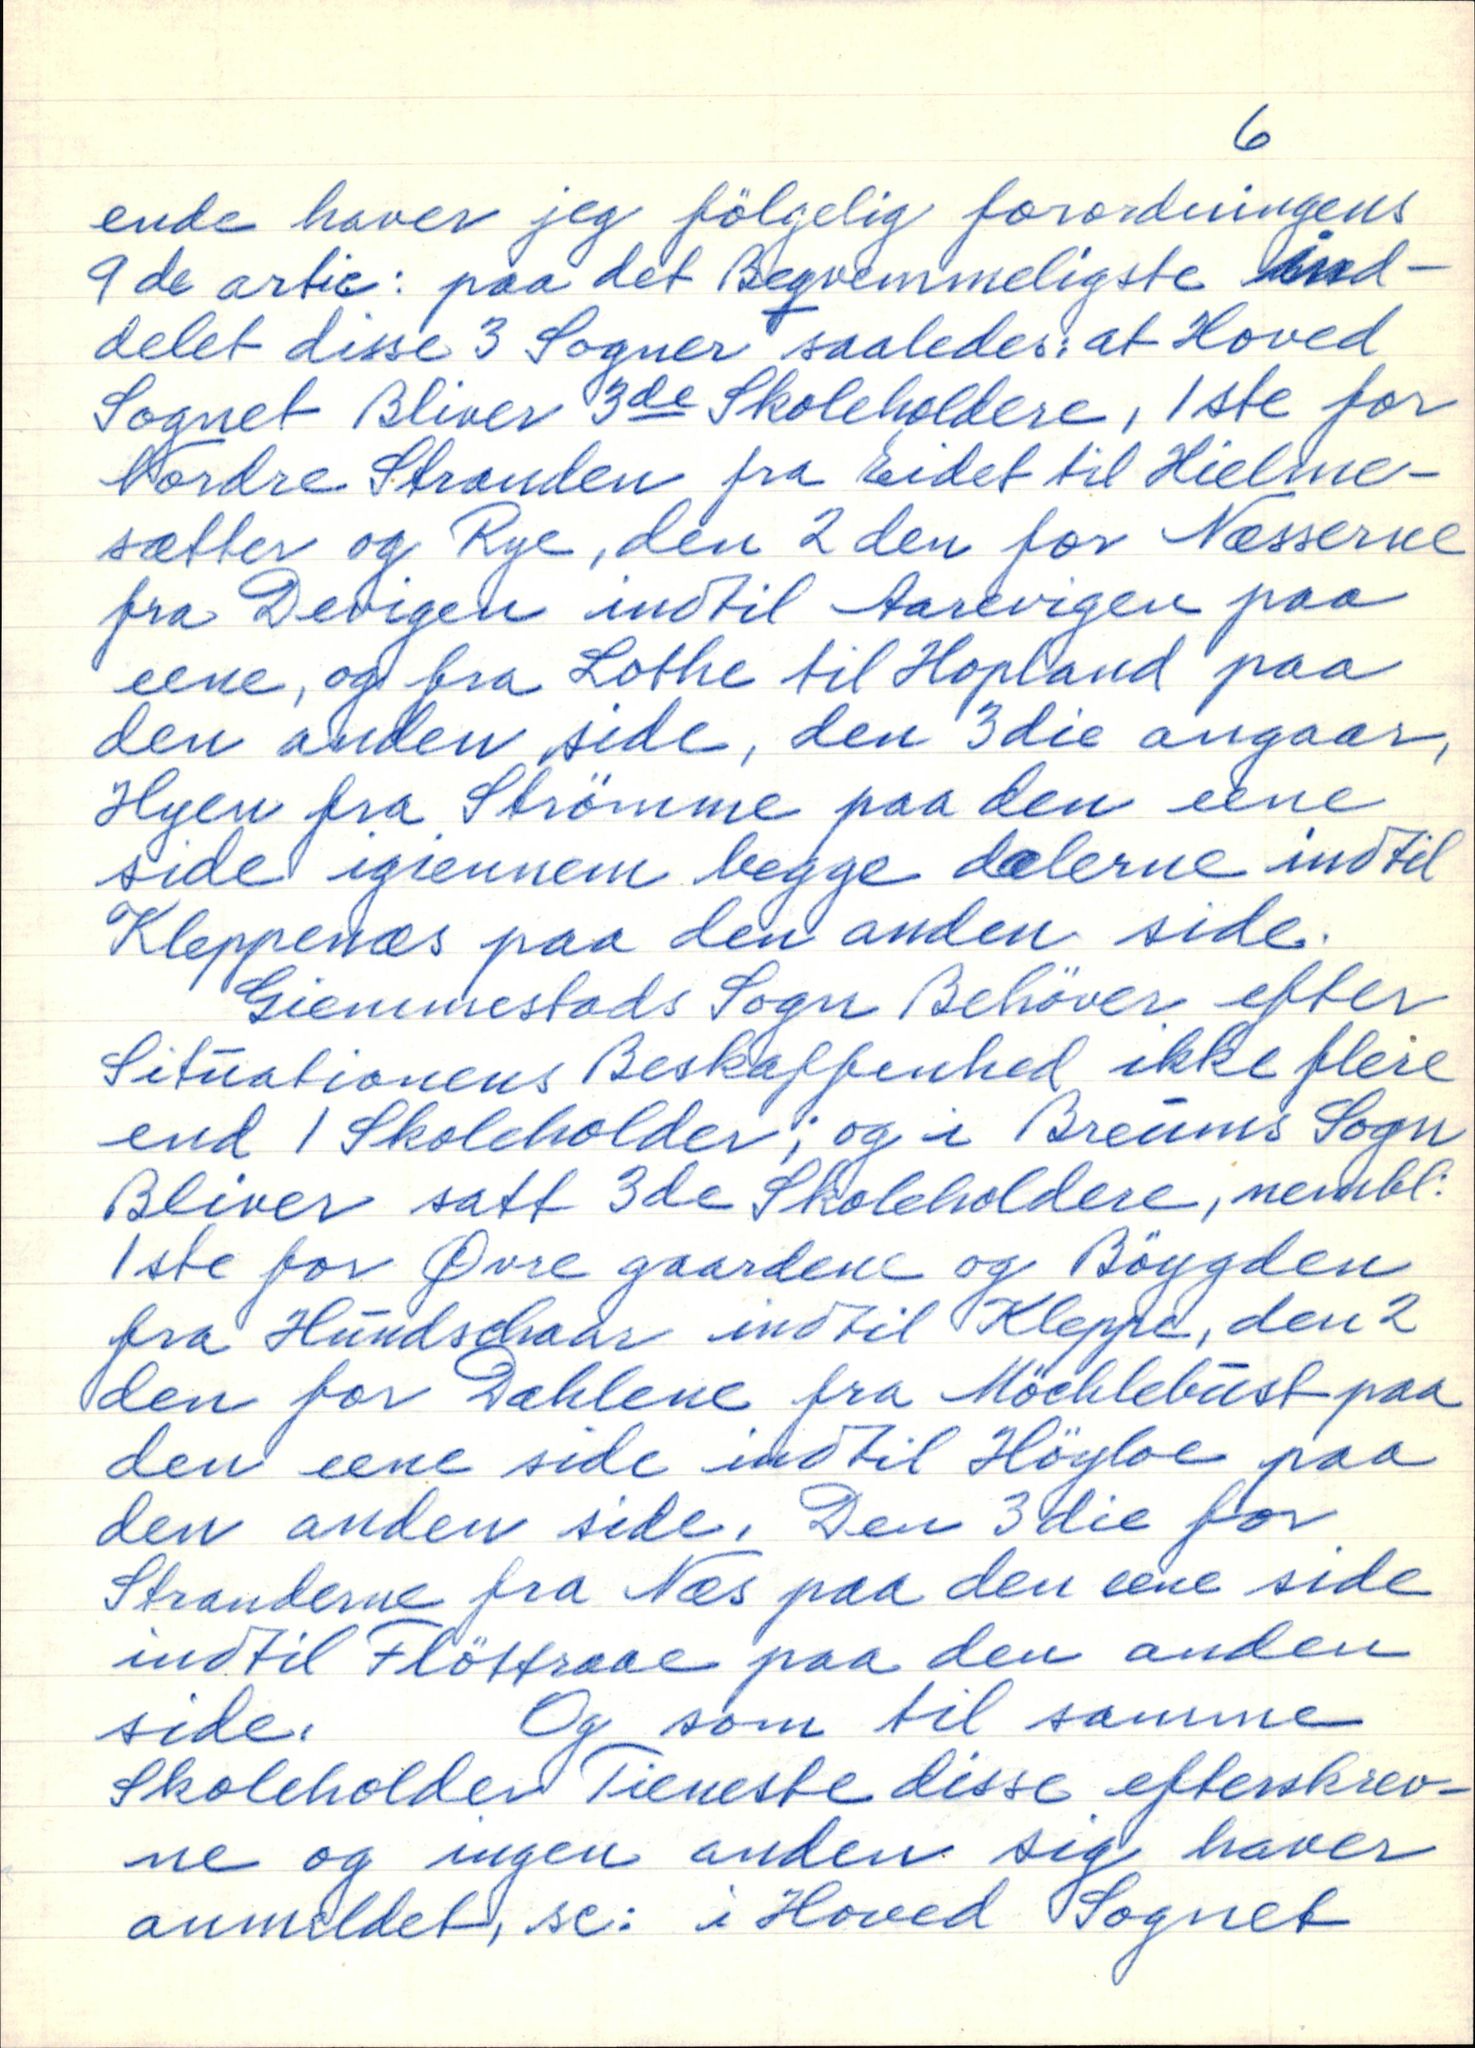 6
ende haver jeg fölgelig forordningens
9de artic: paa det Beqvemmeligste ind-
delet disse 3 Sogner saaledes: at Hoved
Sognet Bliver 3de Skoleholdere, 1ste for
Nordre Stranden fra Eidet til Hielme-
sætter og Rye, den 2den for Næsserne
fra Devigen indtil Aarevigen paa
eene, og fra Lothe til Hopland paa
den anden side, den 3die angaar,
Hyen fra Strömme paa den eene
side igiennem begge dælerne indtil
Kleppenæs paa den anden side.
Giemmestads Sogn Behöver efter
Situationens Beskaffenhed ikke flere
end 1 Skoleholder; og i Breums Sogn
Bliver satt 3de Skoleholdere, nembl:
1ste for Øvre gaardene og Böygden
fra Hundschaar indtil Kleppe, den 2
den for Dahlene fra Möchlebust paa
den eene side indtil Höyloe paa
den anden side. Den 3die for
Stranderne fra Næs paa den eene side
indtil Flöttraae paa den anden
side. Og som til samme
Skoleholder Tieneste disse efterskrev-
ne og ingen anden sig haver
anmeldet, sc: i Hoved Sognet